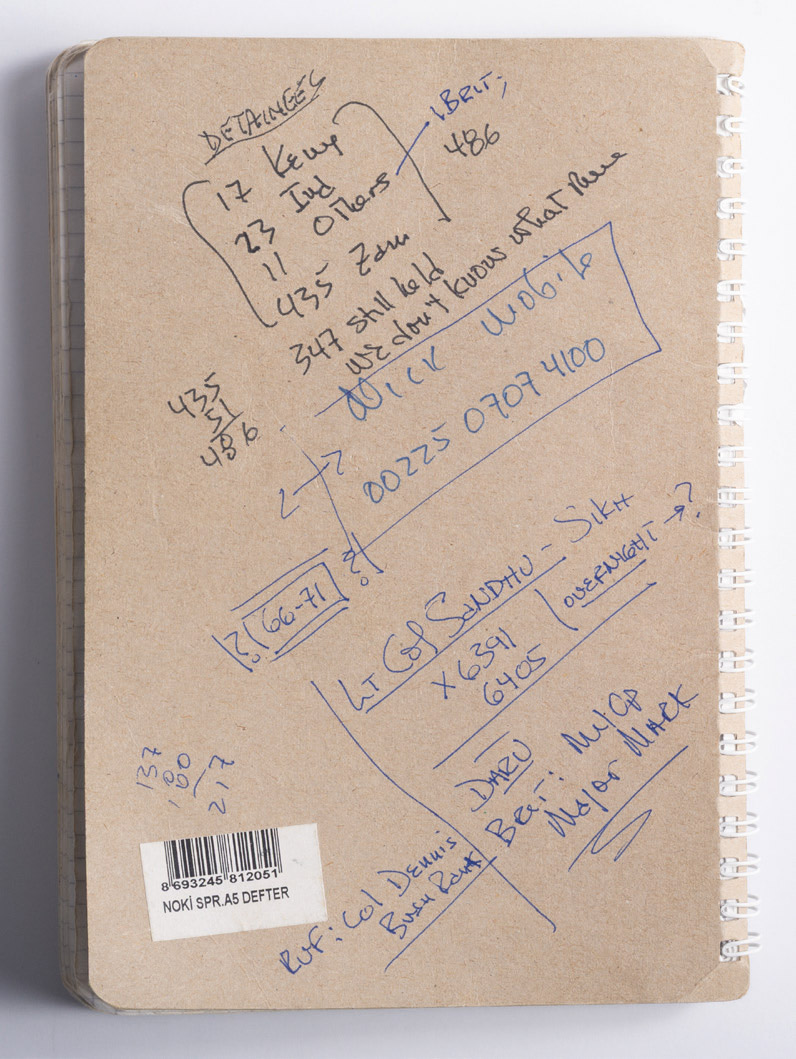 DETAINEES
17 Keny
23 Ind
11 Others
1 BRIT;
435 Zam
486
347 still held
WE don't know what there
435
51
486
NICK Mobile
00225 0707 4100
?
66-71
?!
?!
LT Col SANDHU - SIKH
x 6391
6405
OVERNIGHT → ?
DARU
BRIT:
Major MARK
137
217
RUF: Col Dennis
8 693245 812051
NOKİ SPR.A5 DEFTER